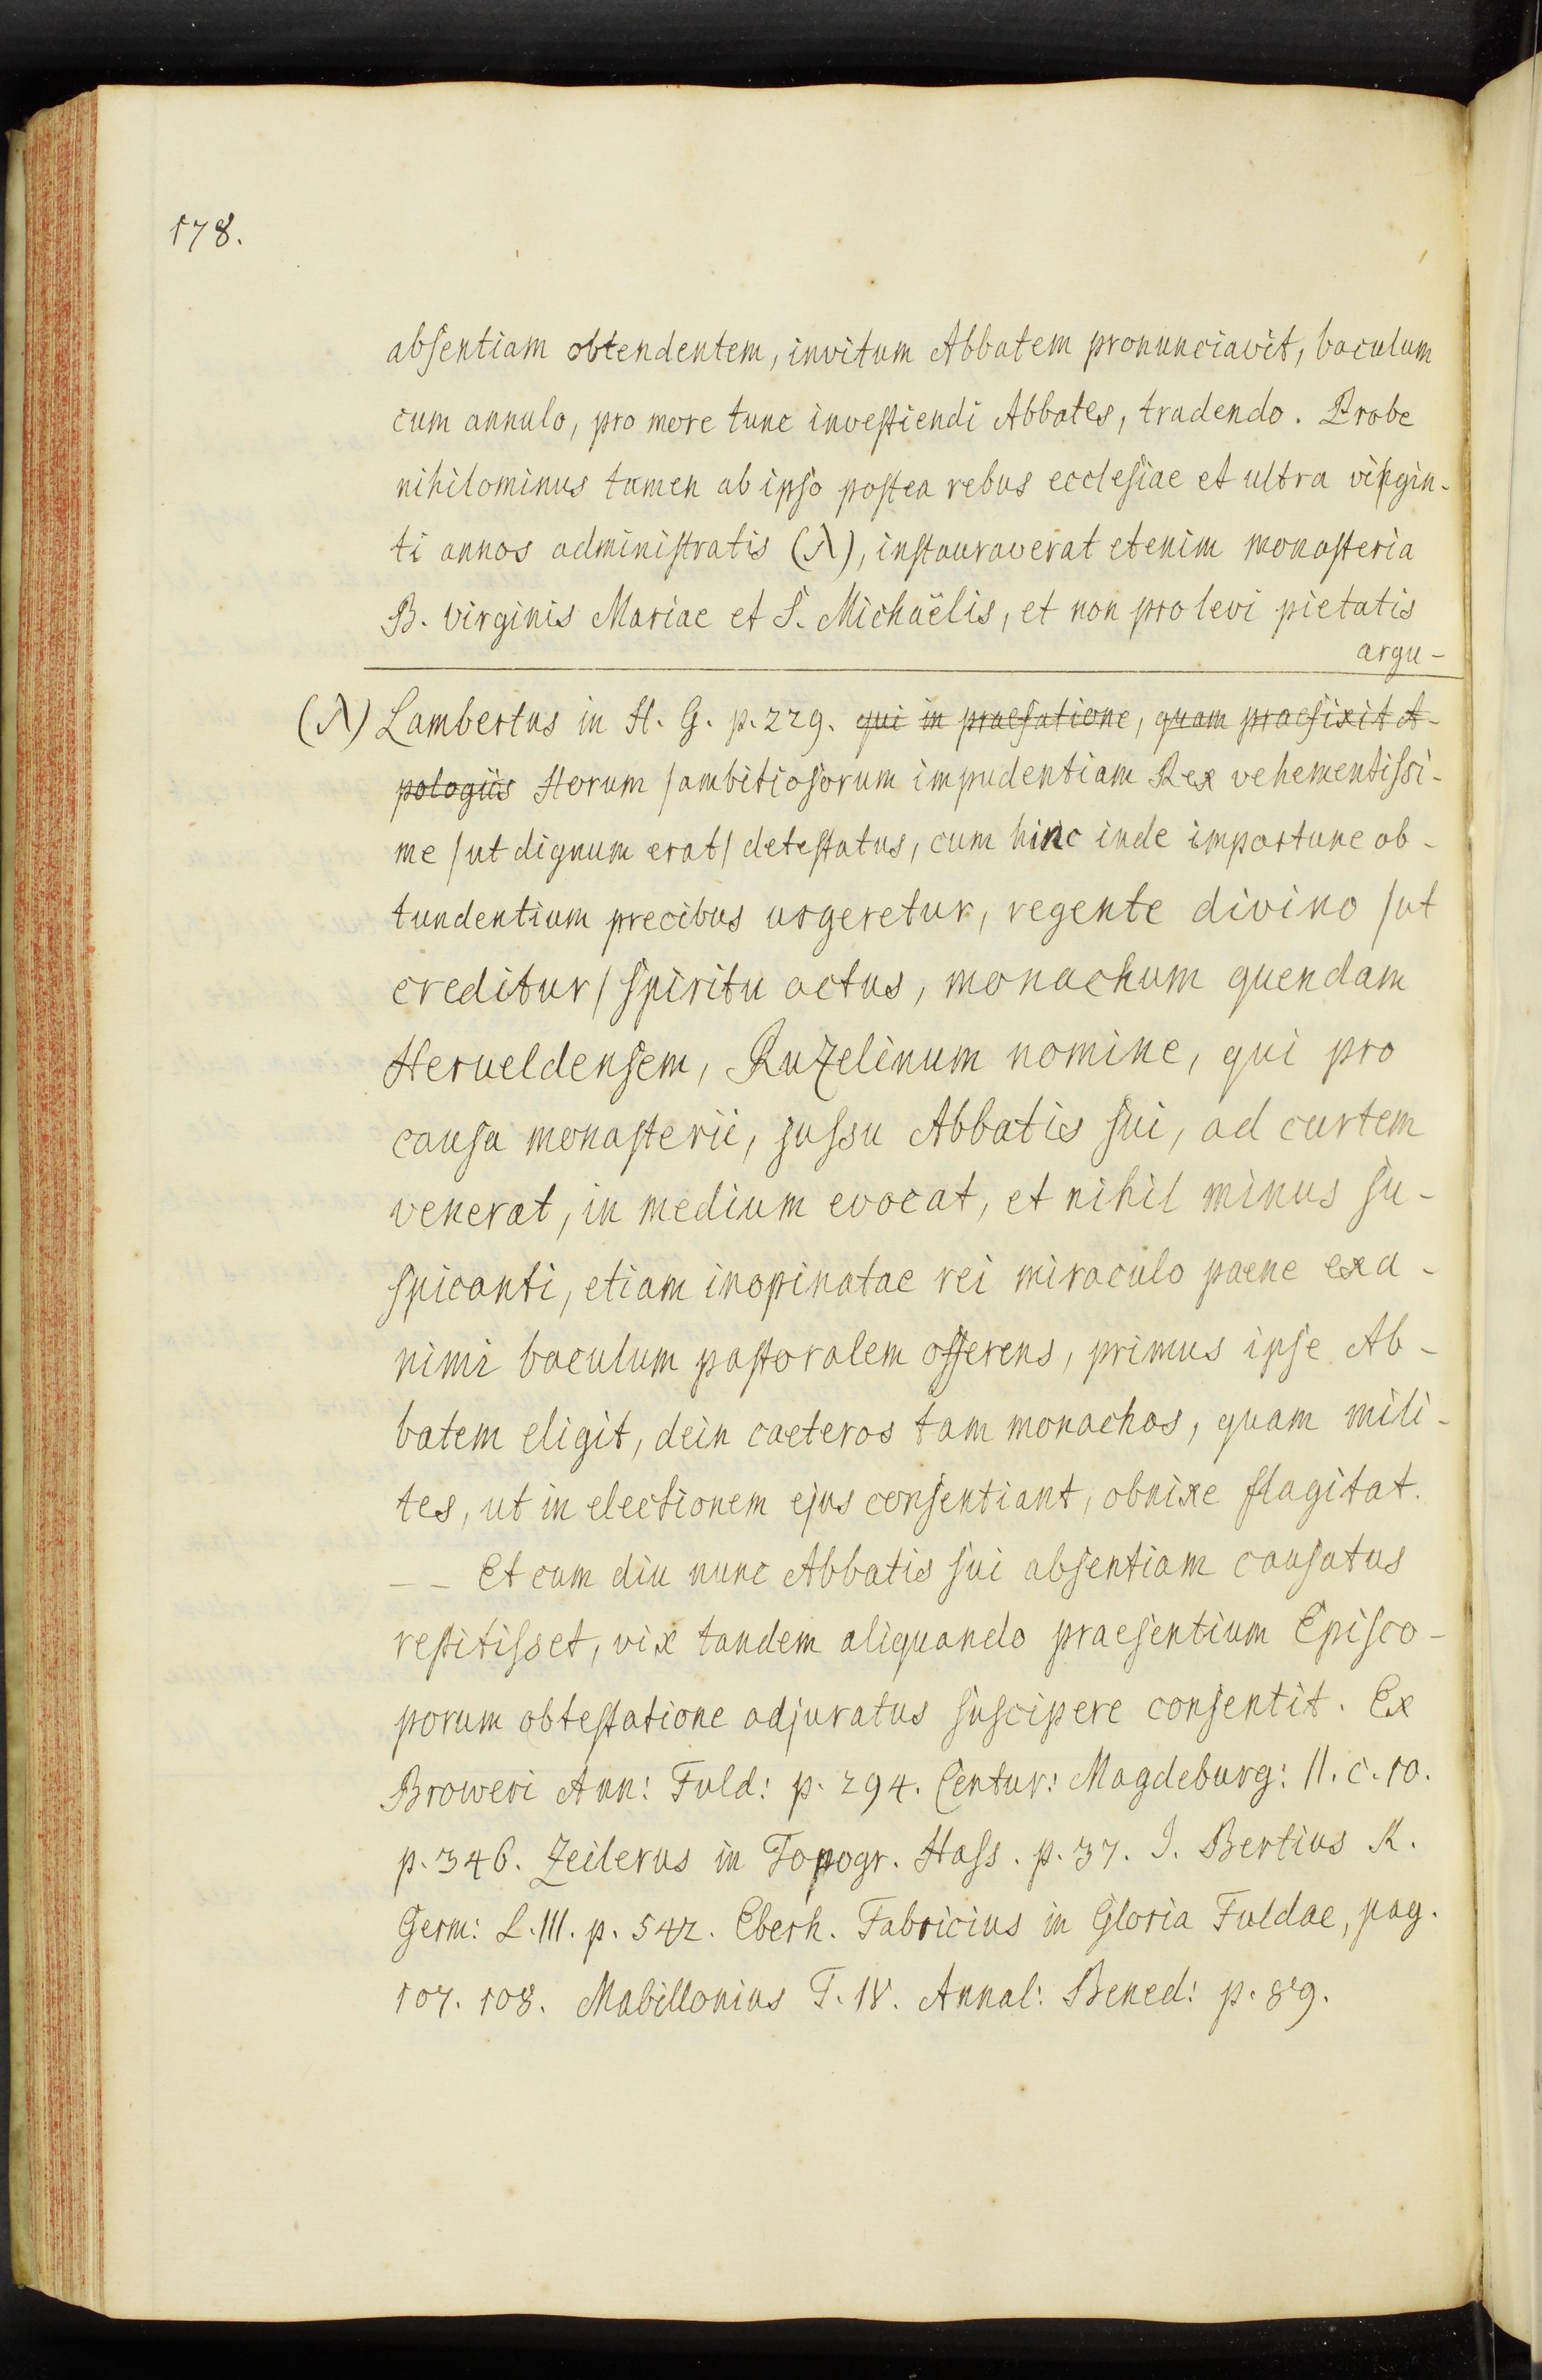 178.
absentiam obtendentem, invitum Abbatem pronunciavit, baculum
cum annulo, pro more tunc investiendi Abbates, tradendo. Probe
nihilominus tamen ab ipso postea rebus ecclesiae et ultra vigin-
ti annos administratis (λ), instauraverat etenim monasteria
B. virginis Mariae et S. Michaëlis, et non pro levi pietatis
argu-
(λ) Lambertus in H. G. p. 229. qui in praefatione, quam praefixit A-
pologiis Horum /ambitiosorum impudentiam Rex vehementissi-
me /ut dignum erat/ detestatus, cum hinc inde importune ob-
tundentium precibus urgeretur, regente divino /ut
creditur/ spiritu actus, monachum quendam
Herueldensem, Ruzelinum nomine, qui pro
causa monasterii, jussu Abbatis sui, ad curtem
venerat, in medium evocat, et nihil minus su-
spicanti, etiam inopinatae rei miraculo paene exa-
nimi baculum pastoralem offerens, primus ipse Ab-
batem eligit, dein caeteros tam monachos, quam mili-
tes, ut in electionem ejus consentiant, obnixe flagitat.
– – Et cum diu nunc Abbatis sui absentiam causatus
restitisset, vix tandem aliquando praesentium Episco-
porum obtestatione adjuratus suscipere consentit. Ex
Broweri Ann: Fuld: p. 294. Centur: Magdeburg: 11. c. 10.
p. 346. Zeilerus in Topogr. Hass. p. 37. J. Bertius R.
Germ: L. III. p. 542. Eberh. Fabricius in Gloria Fuldae, pag.
107. 108. Mabillonius T. IV. Annal: Bened: p. 89.